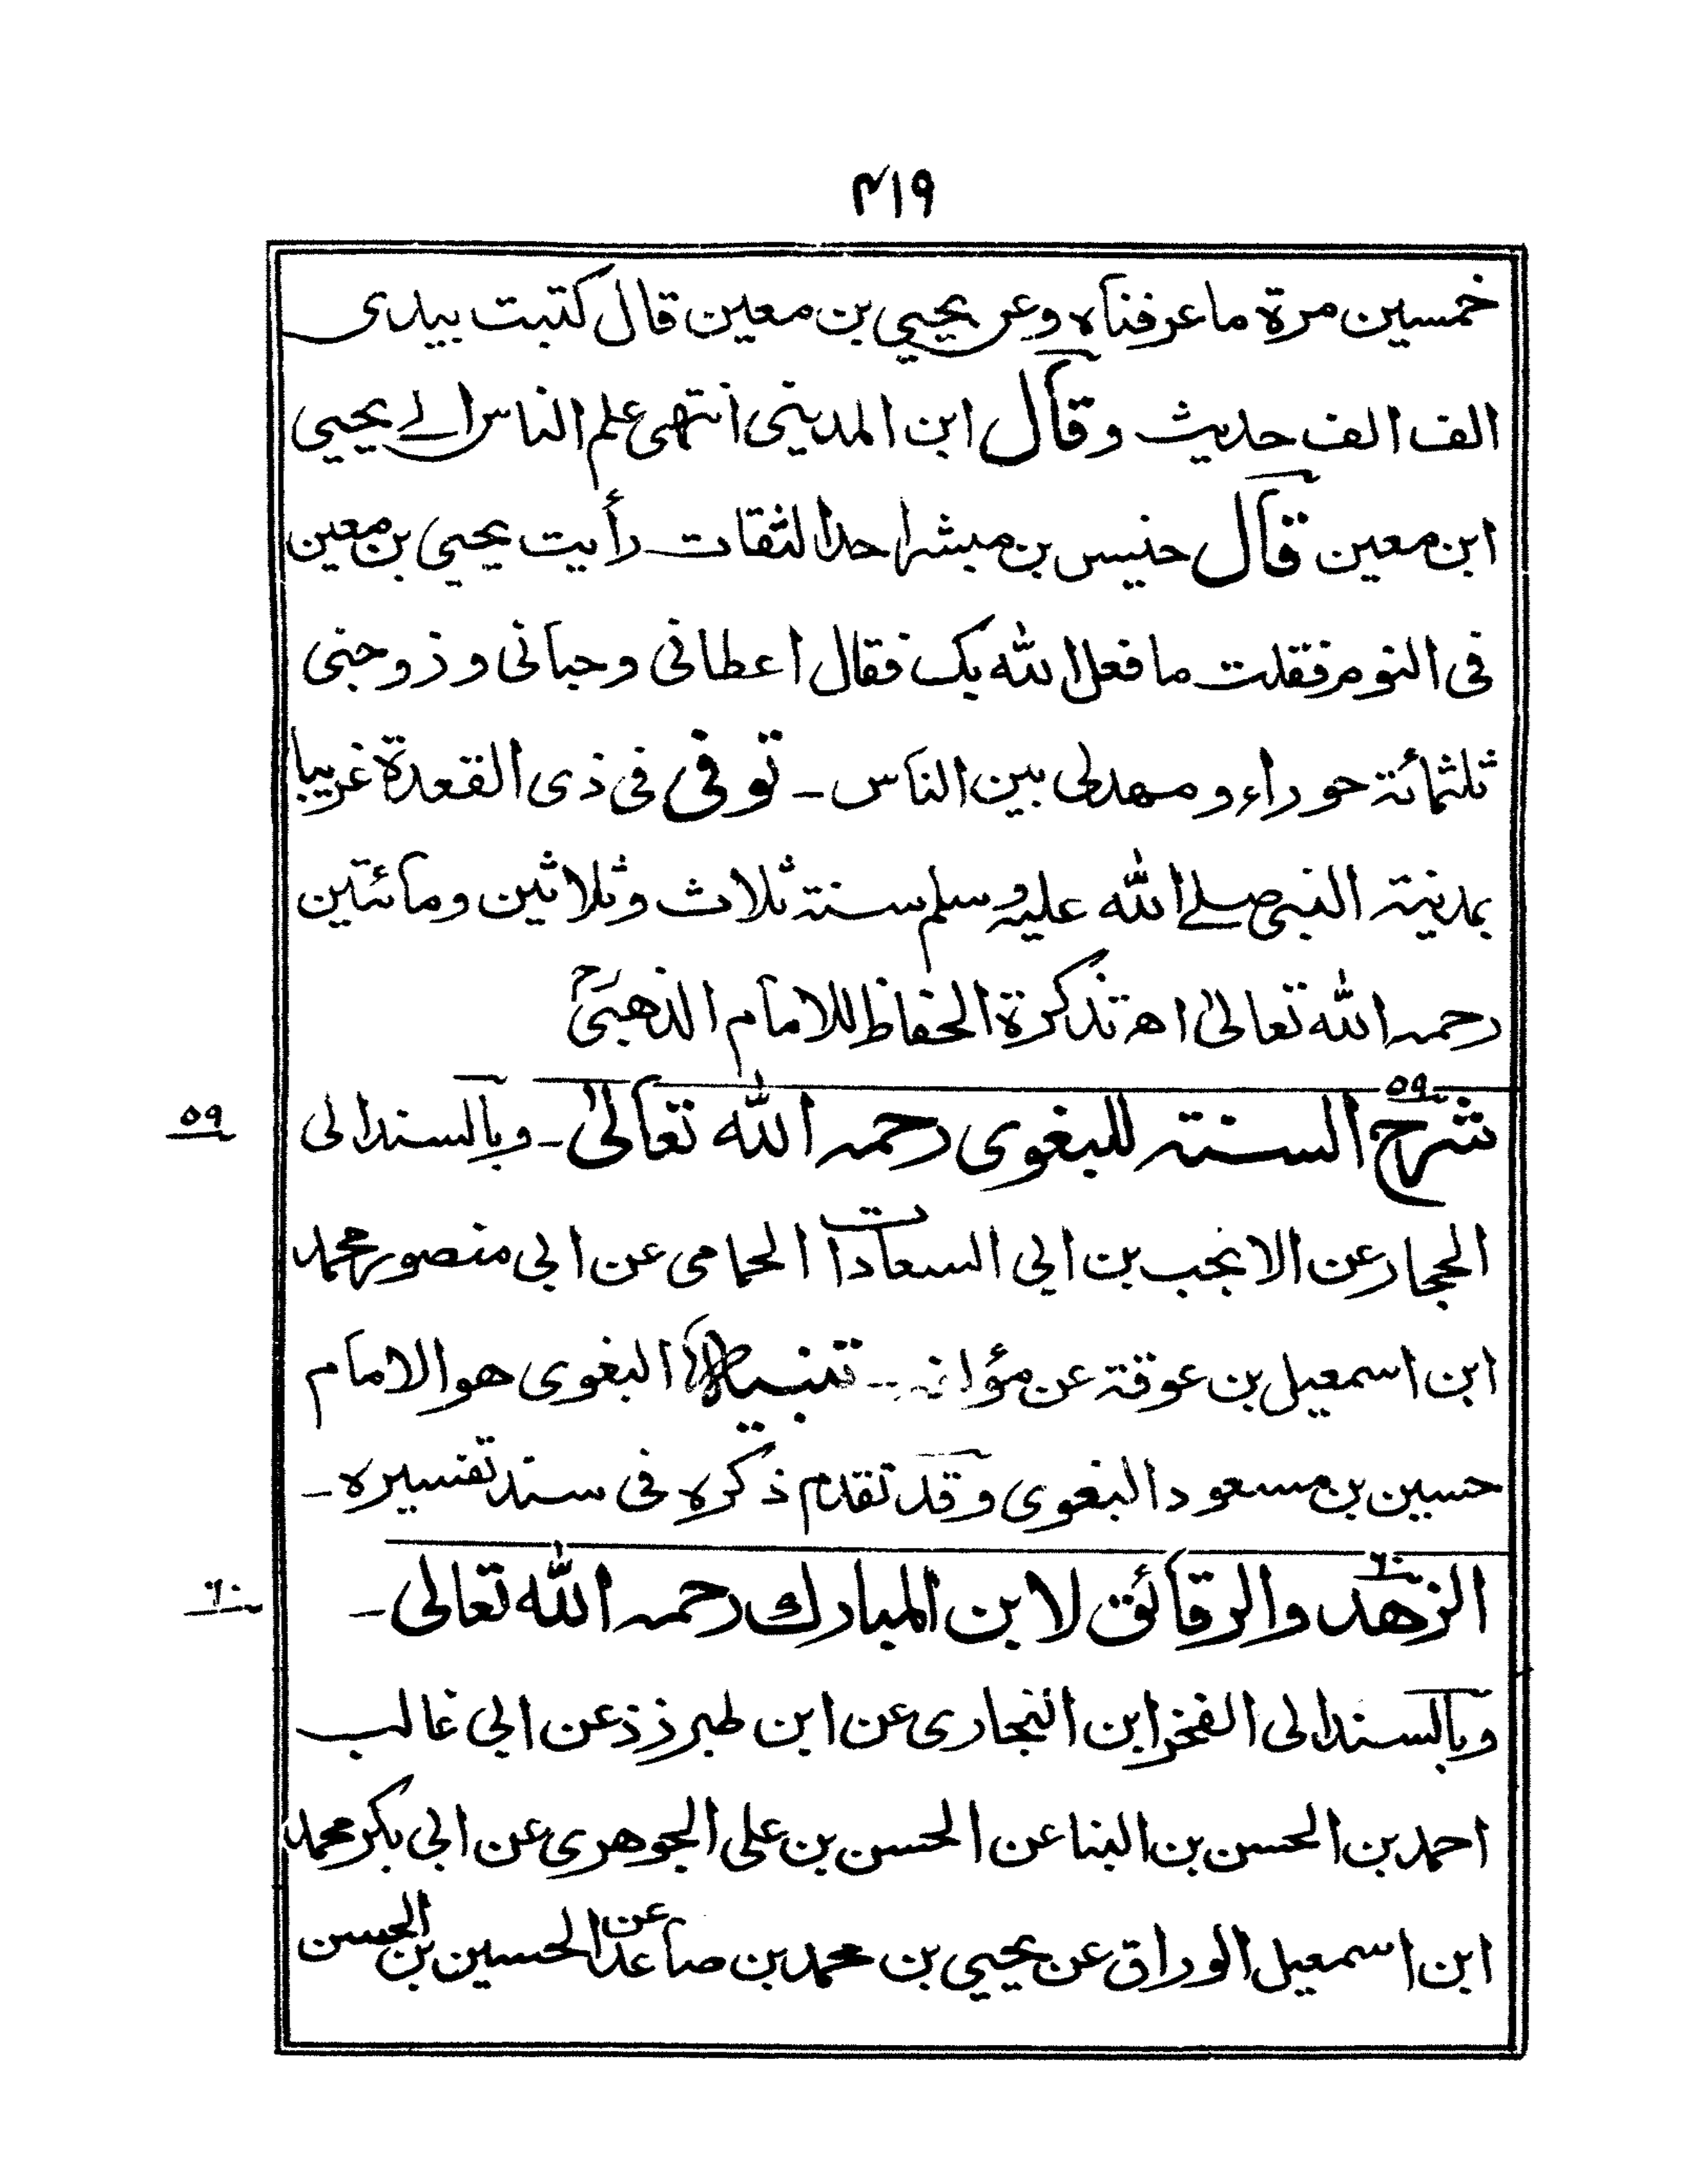 ۴۱۹
خمسين مرة ماعرفناه وعن يحيي بن معين قال كتبت بيدى
الف الف حديث وقال ابن المدينى انتهى علم الناس الے يحيى
ابن معين قال حنيس بن مبشر احد الثقات رأيت يحيى بن معين
فى النوم فقلت ما فعل الله بك فقال اعطانى وحبانى وزوجنى
ثلثمائة حوراء ومهد لى بين الناس ـ توفى فى ذى القعدة غريبا
بمدينة النبى صلے الله عليه وسلم سنة ثلاث وثلاثين ومائتين
رحمه الله تعالىٰ اھ تذكرة الحفاظ للامام الذهبىؒ
۵۹ شرح السنة للبغوى رحمه الله تعالىٰ ـ وبالسند الى ۵۹
الحجار عن الانجب بن ابى السعادات الحمامى عن ابى منصور محمد
ابن اسمعيل بن عوقة عن مؤلفه ـ تنبيه البغوى هو الامام
حسين بن مسعود البغوى وقد تقدم ذكره فى سند تفسيره ـ
۶۰ الزهد والرقائق لابن المبارك رحمه الله تعالى ـ ۶۰
وبالسند الى الفخر ابن النجارى عن ابن طبرزذ عن ابى غالب
احمد بن الحسن بن البنا عن الحسن بن على الجوهرى عن ابى بكر محمد
ابن اسمعيل الوراق عن يحيي بن محمد بن صاعد عن الحسين بن الحسن